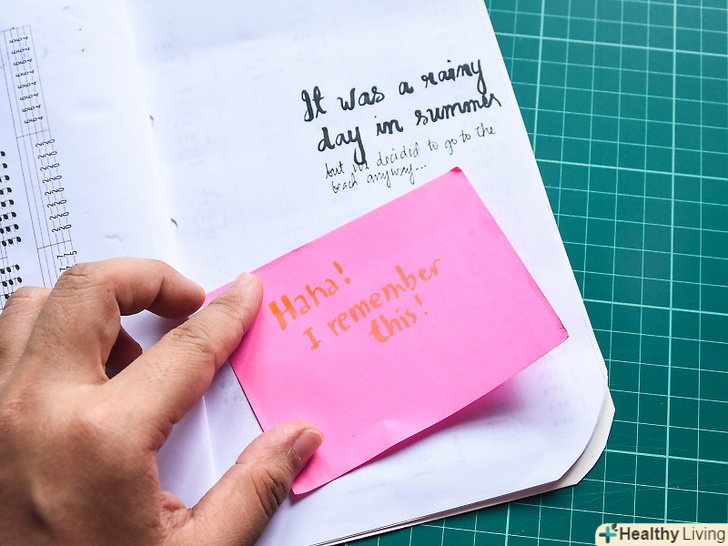 It was a rainy
day in summer
but we decided to go to the
beach anyway...
Haha!
I remember
this!
Healthy Living